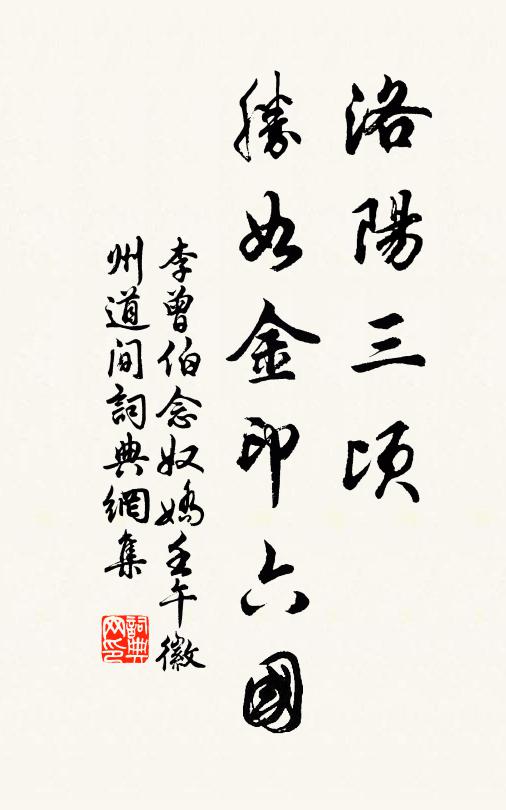 洛陽三頃
勝如金印六國
李曾伯念奴嬌壬午徽
州道間詞典網集
詞典
网印